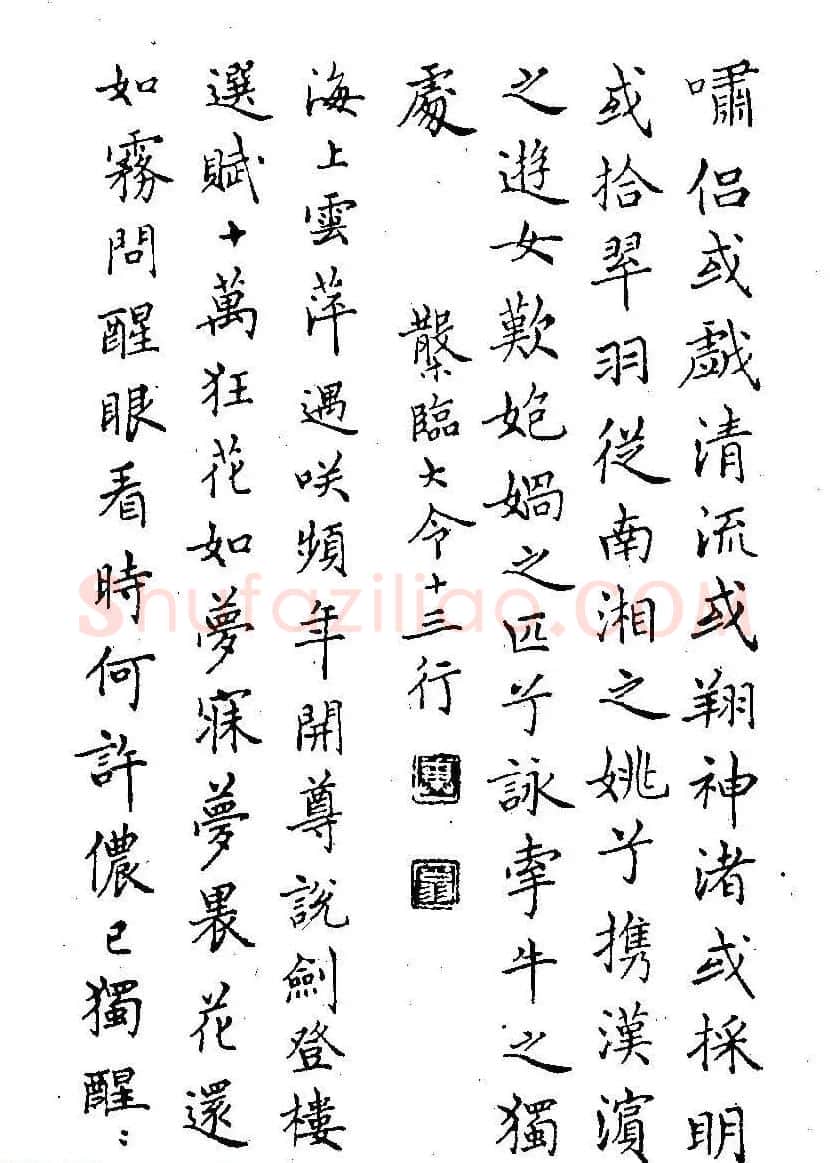 嘯侣或戯清流或翔神渚或採明
或拾翠羽從南湘之姚兮携漢濱
之遊女歎媧之匹兮詠牽牛之獨
處
臨大令十三行
海上雲萍遇咲頻年開尊說劍登樓
選賦十萬狂花如夢寐夢裏花還
如霧問醒眼看時何許儂已獨醒:
Shufaziliao.COM